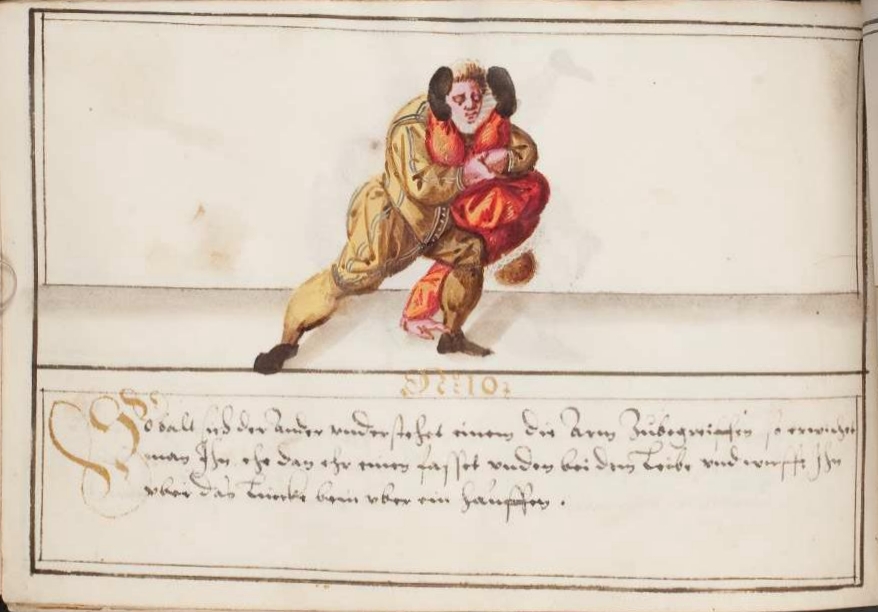 Nº: 10:
So balt sich der ander understehet einem die Arm zubegreiffen, so erwischet
man Ihn ehe dan ehr einen fasset unden bei dem Leibe und wirfft Ihn
uber das Lincke bein uber ein hauffen.